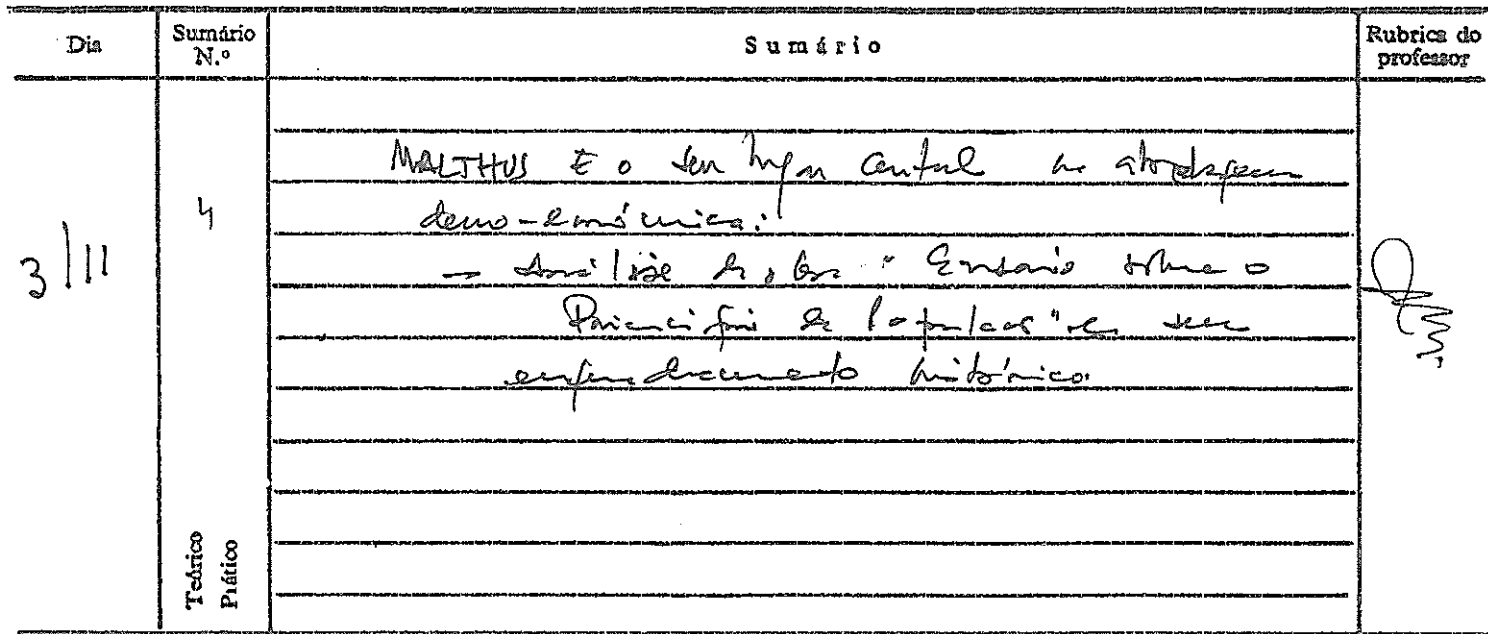 Dia
Sumário N.º
Sumário
Rubrica do professor
3/11
4
MALTHUS E o seu lugar central na abordagem
demo-económica:
→ Análise da obra "Ensaio sobre o
Princípio de População" e seu
enquadramento histórico.
Teórico
Prático